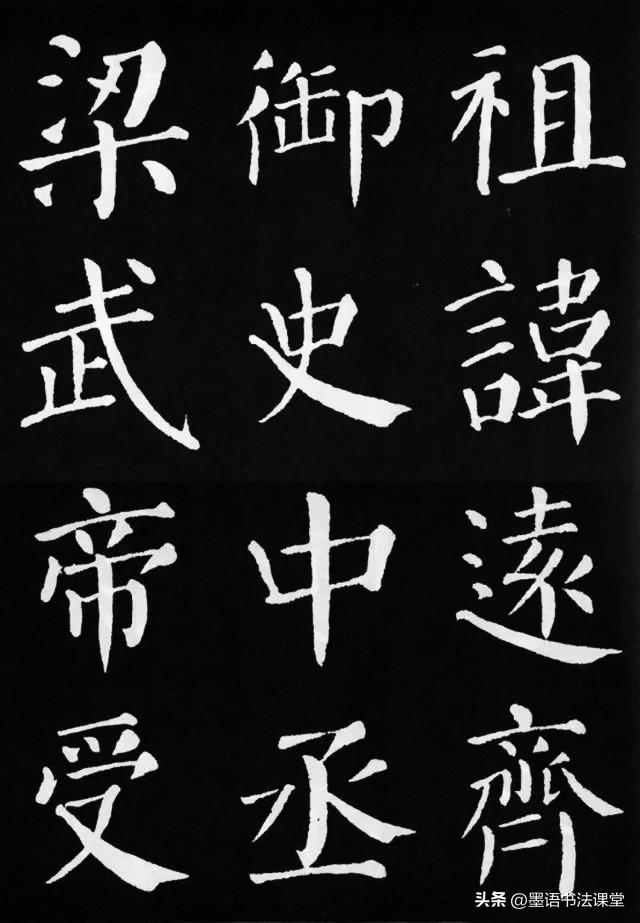 祖諱遠齊
御史中丞
梁武帝受
头条 @墨语书法课堂